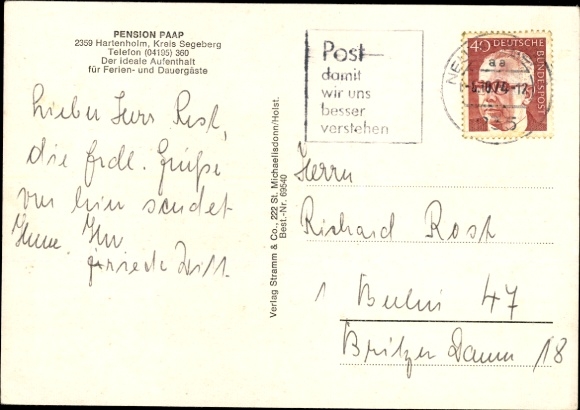 PENSION PAAP
2359 Hartenholm, Kreis Segeberg
Telefon (04195) 360
Der ideale Aufenthalt
für Ferien- und Dauergäste
Lieber Herr Rost,
die frdl. Grüße
von hier sendet
Ihnen Ihr
Verlag Stramm & Co., 222 St. Michaelisdonn/Holst.
Best.-Nr. 69540
Post
damit
wir uns
besser
verstehen
40 DEUTSCHE
BUNDESPOST
Herrn
Richard Rost
1 Berlin 47
Britzer Damm 18